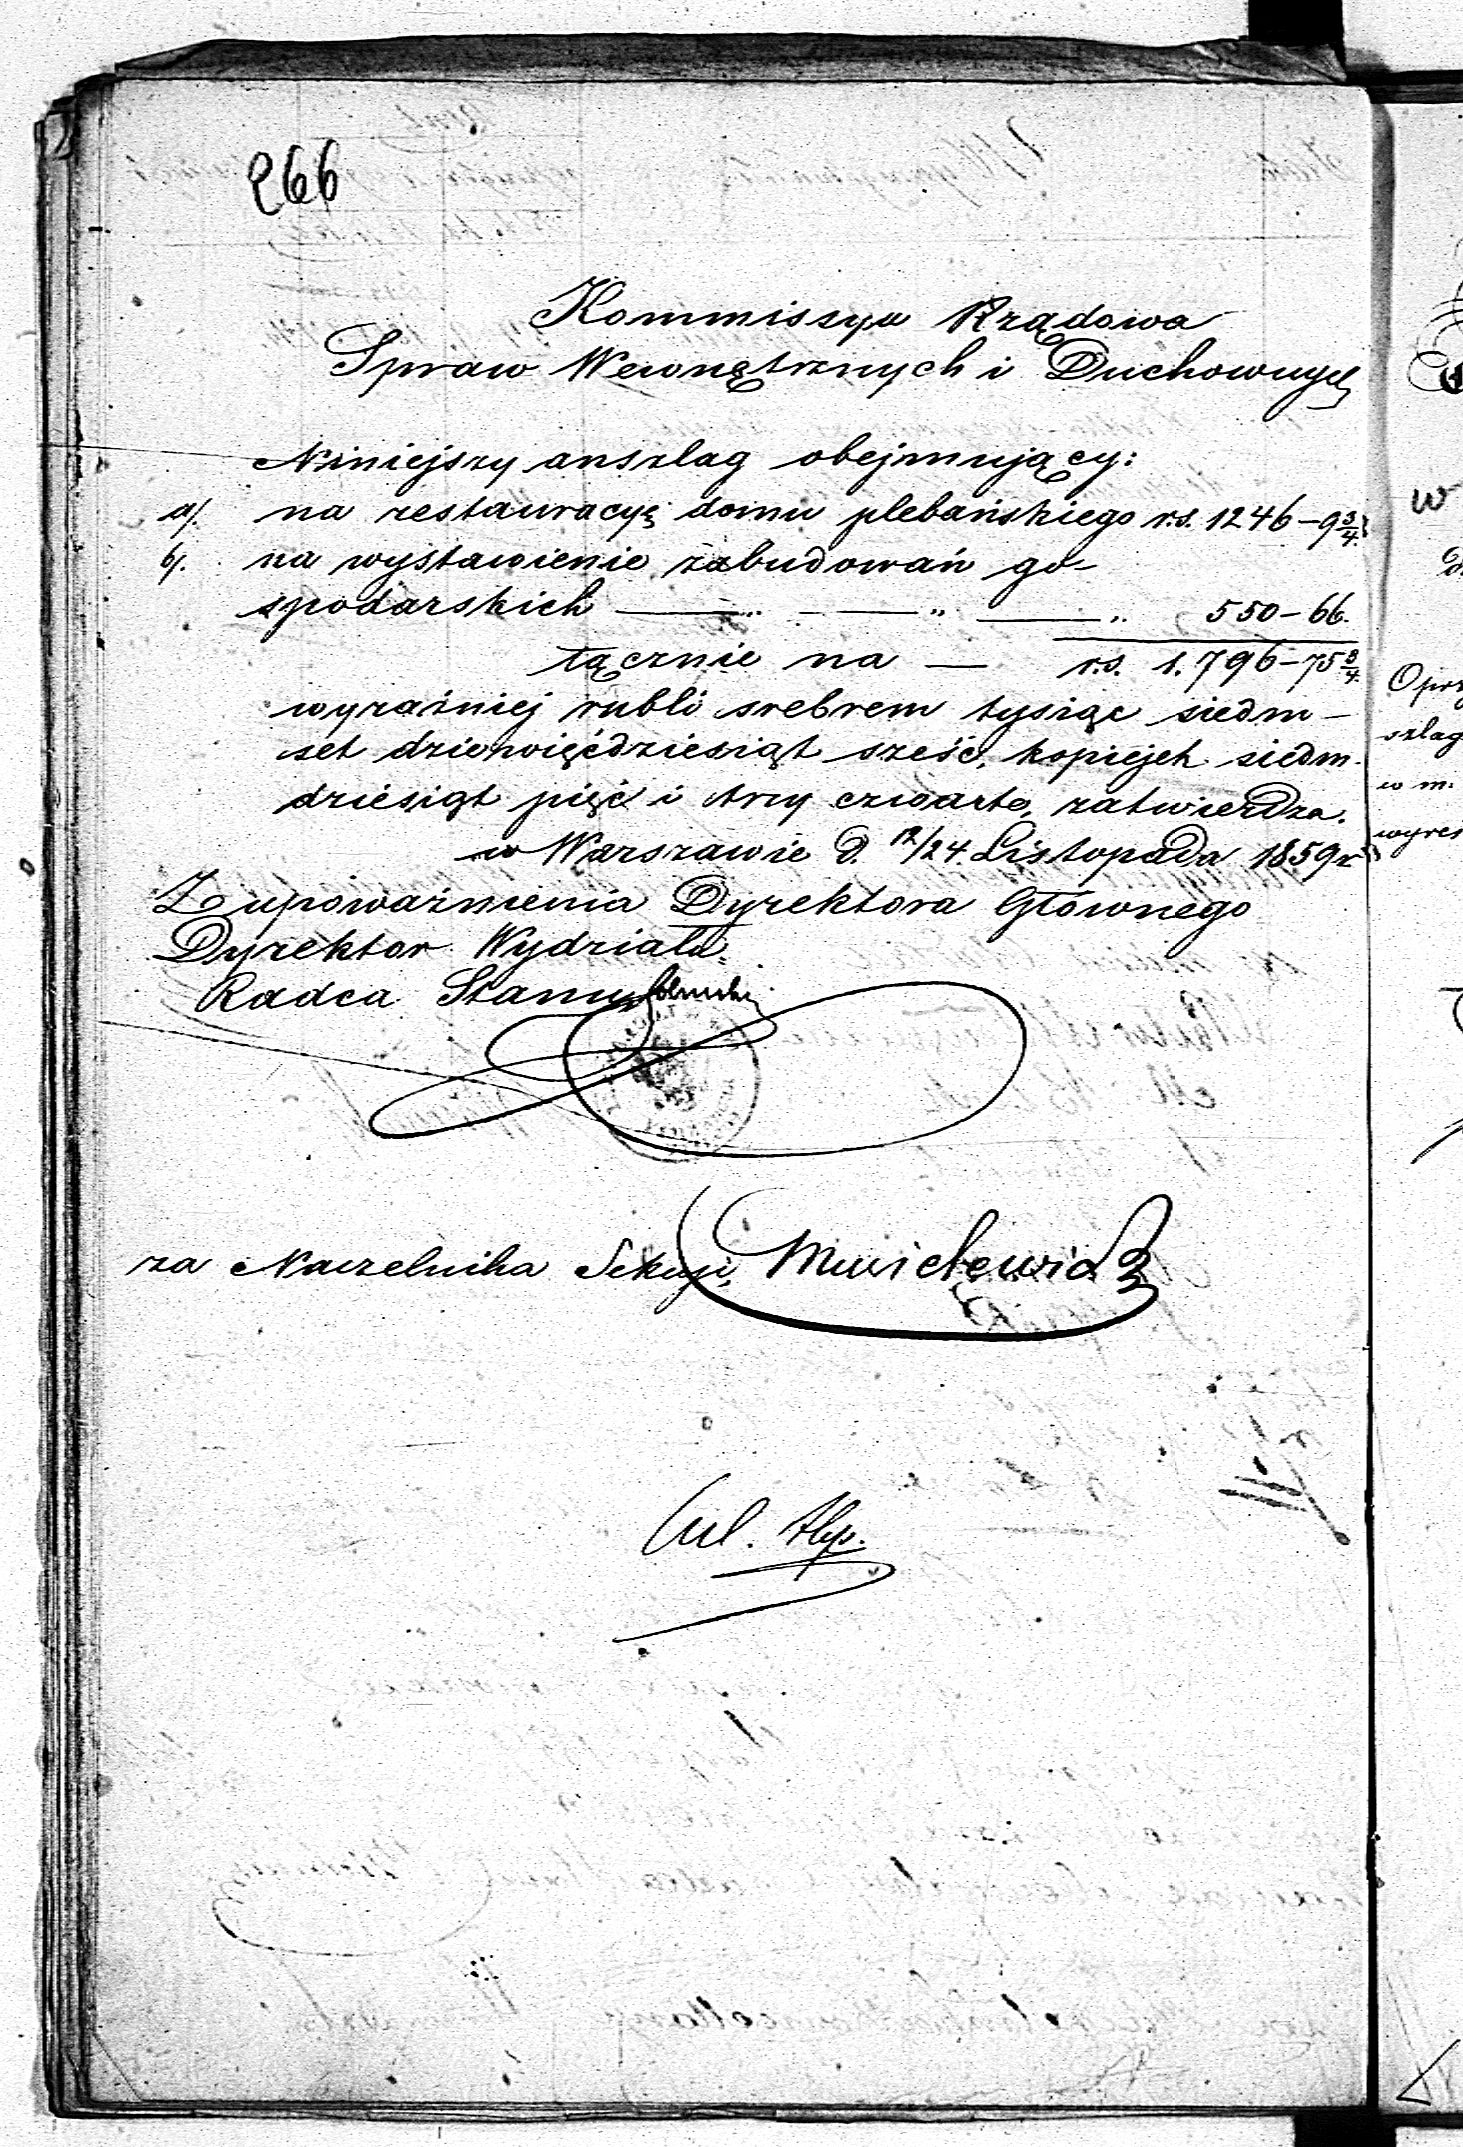 266
Kommissya Rządowa
Spraw Wewnętrznych i Duchownych
Niniejszy anszlag obejmujący:
a/. na restauracyę domu plebańskiego r.s. 1246 - 9 3/4.
b/. na wystawienie zabudowań go-
spodarskich — " — " — " 550 - 66.
łącznie na — r.s. 1.796 - 75 3/4.
wyraźniej rubli srebrem tysiąc siedm-
set dziewięćdziesiąt sześć, kopiejek siedm-
dziesiąt pięć i trzy czwarte, zatwierdza.
w Warszawie d. 12/24. Listopada 1859 r.
Z upoważnienia Dyrektora Głównego
Dyrektor Wydziału
Radca Stanu
za Naczelnika Sekcyi,
Oprz
szlag
w m.
wyres